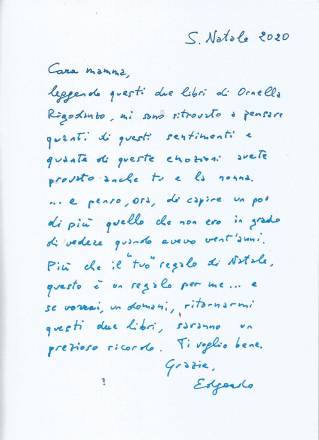 S. Natale 2020
Cara mamma,
leggendo questi due libri di Ornella
mi sono ritrovato a pensare
quanti di questi sentimenti e
quante di queste emozioni avete
provato anche tu e la nonna.
... e penso, ora, di capire un po'
di più quello che non ero in grado
di vedere quando avevo vent'anni.
Più che il "tuo" regalo di Natale,
questo è un regalo per me... e
se vorrai, un domani, ritornarmi
questi due libri, saranno un
prezioso ricordo. Ti voglio bene.
Grazie,
Edgardo